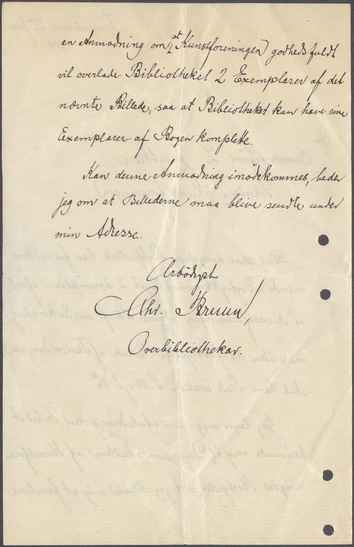 en Anmodning om, at Kunstforeningen godhedsfuldt
vil overlade Bibliotheket 2 Exemplarer af det
nævnte Billede, saa at Bibliotheket kan have sine
Exemplarer af Bogen komplette.
Kan denne Anmodning imødekommes, beder
jeg om at Billederne maa blive sendte under
min Adresse.
Ærbødigst
Chr. Bruun,
Overbibliothekar.